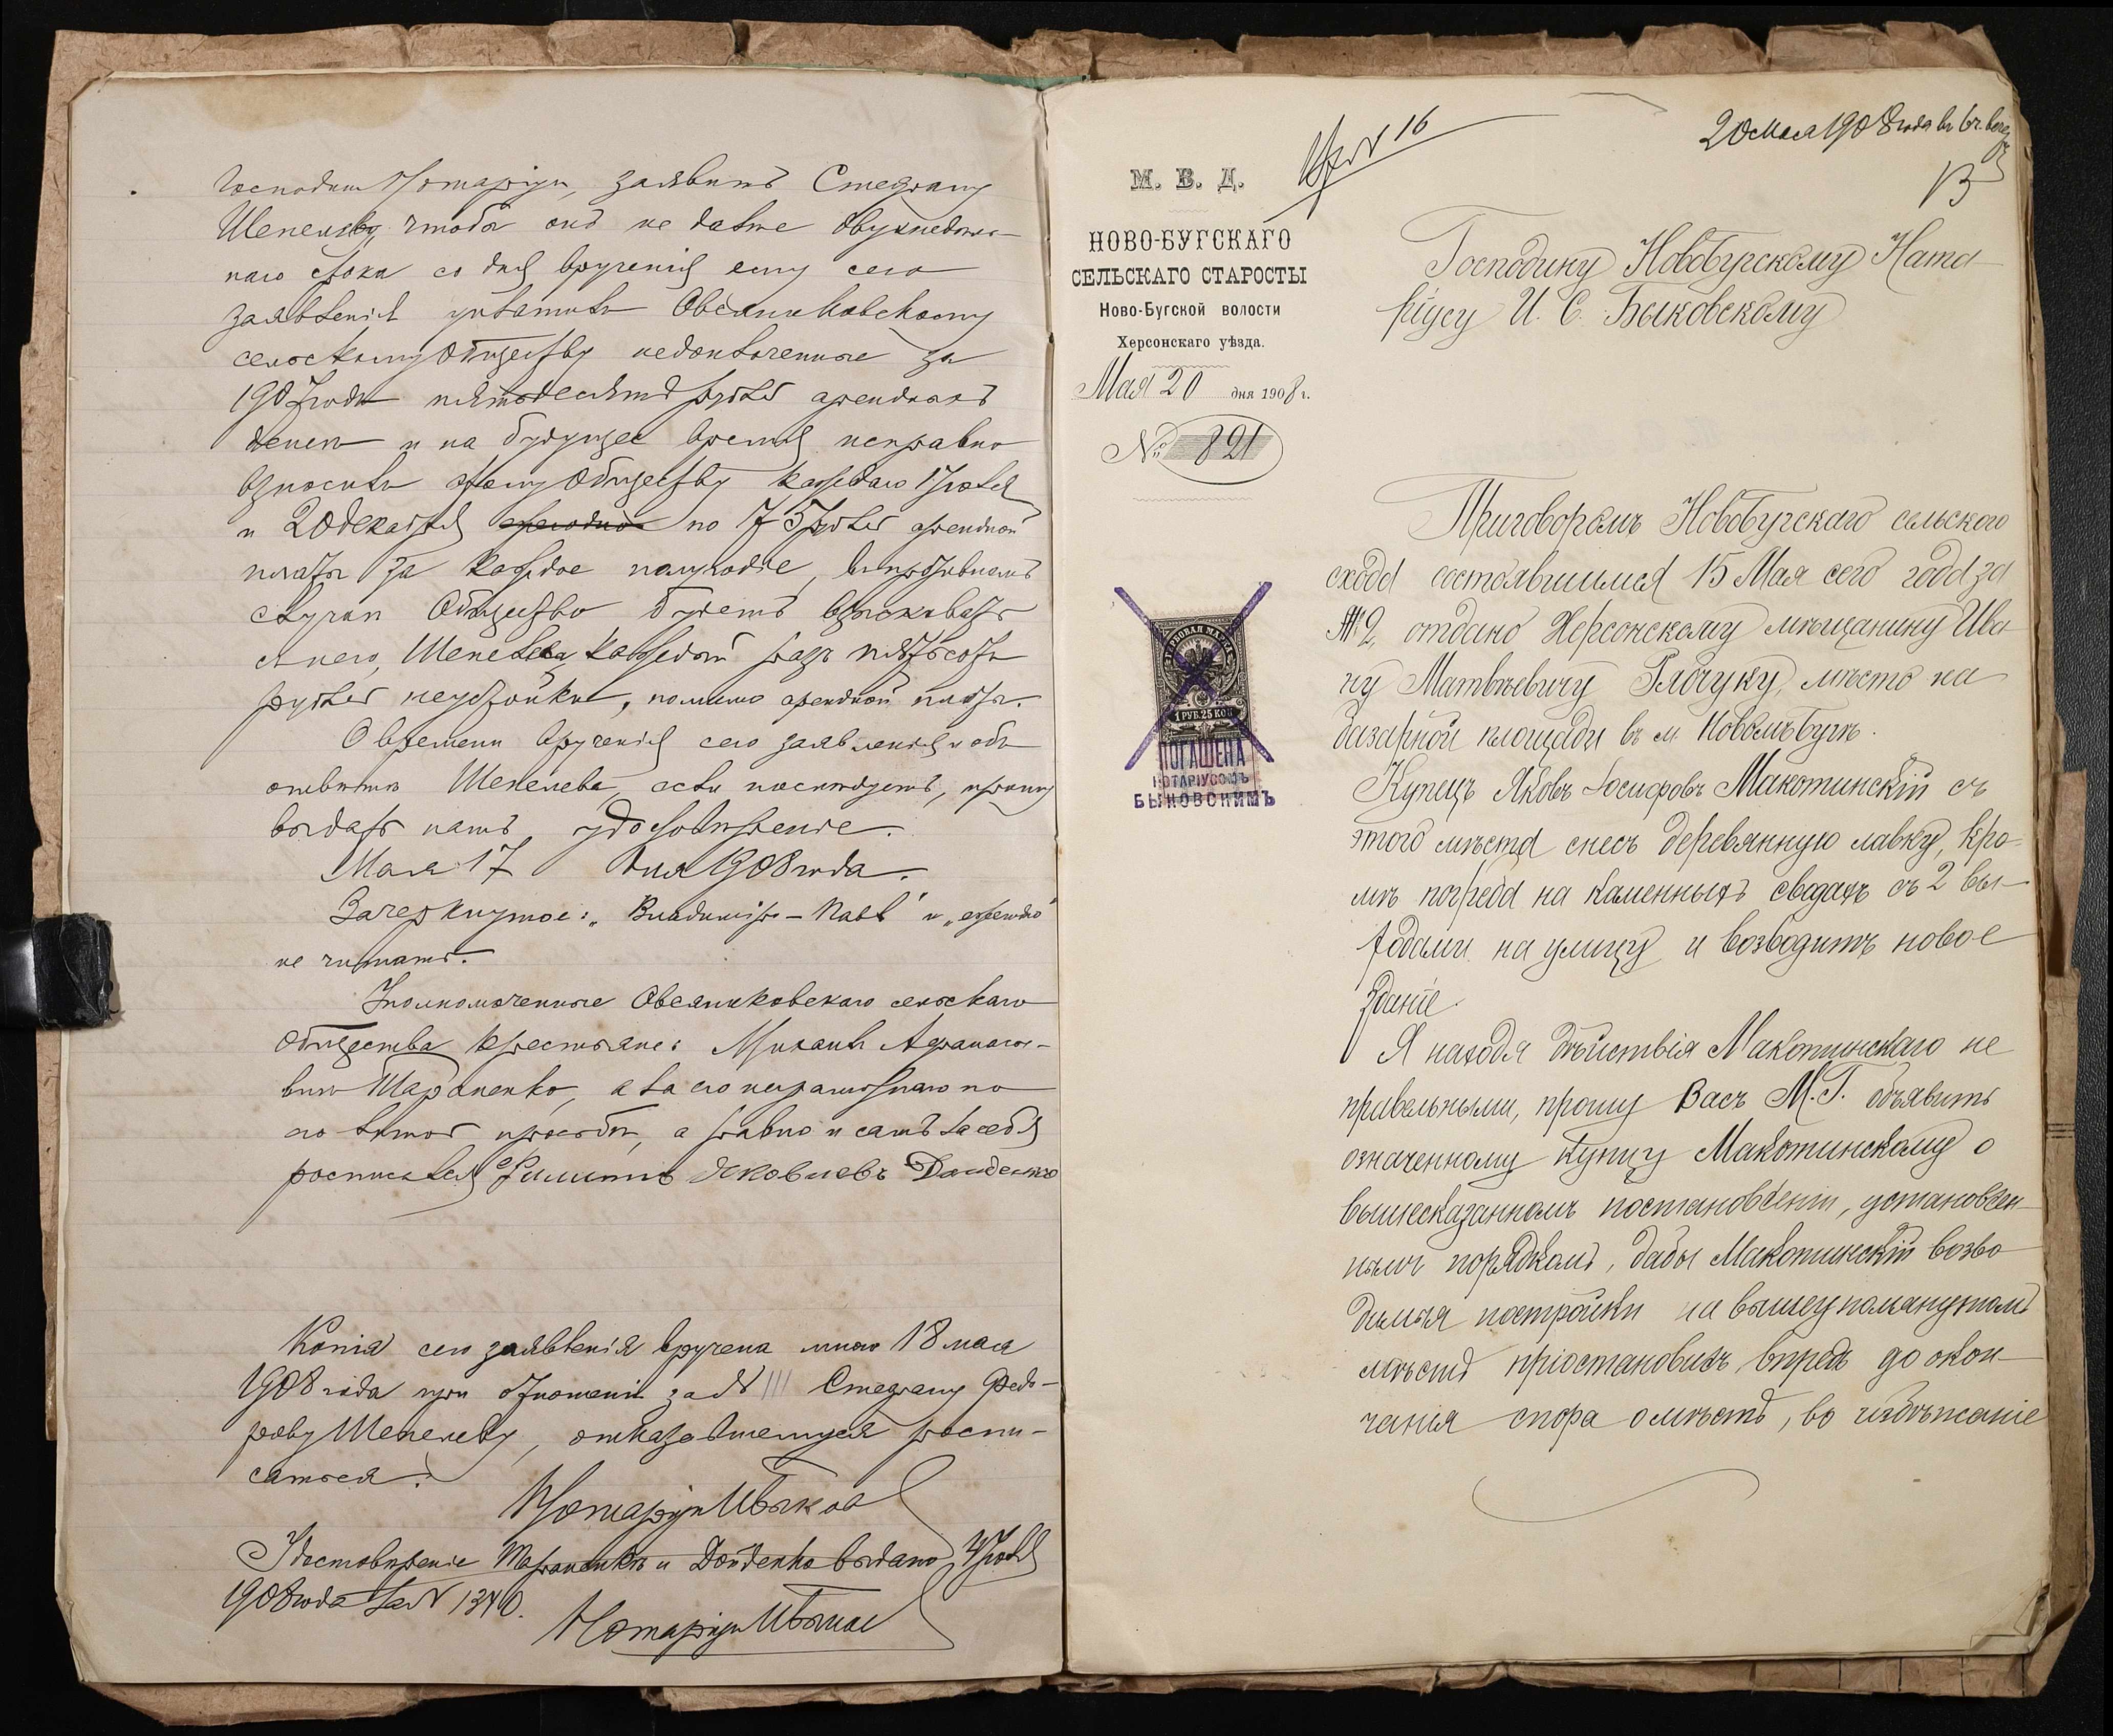 Господинъ Нотаріусъ, заявить Стефану
Шепелеву, чтобы онъ не далѣе двухнедѣль-
наго срока со дня врученія ему сего
заявленія уплатилъ Овсяниковскому
сельскому обществу недоплоченные за
1907 годъ пятьдесятъ рублей арендныхъ
денегъ и на будущее время исправно
взносилъ этому обществу каждаго 1 Іюля
и 20 декабря ежегодно по 75 рублей арендной
платы за каждое полугодіе, въ противномъ
случаѣ Общество будетъ взыскивать
съ него, Шепелева каждый разъ пятьсотъ
рублей неустойки, помимо арендной платы.
О времени врученія сего заявленія и объ
отвѣтѣ Шепелева, если послѣдуетъ, прошу
выдать намъ удостовѣреніе.
Мая 17 дня 1908 года.
Зачеркнутое: „Владимір-Павл" и „ежегодно"
не читать.
Уполномоченные Овсяниковскаго сельскаго
общества крестьяне: Михаилъ Афанасье-
вичъ Шараненко, а за его неграмотнаго по
его личной просьбѣ, а равно и самъ за себя
росписался Филиппъ Яковлевъ Дайденко
Копія сего заявленія вручена мною 18 мая
1908 года при отношеніи за № 111 Стефану Федо-
рову Шепелеву, отказавшемуся распи-
саться.
Нотаріусъ ИБыков
Удостовѣреніе Шараненкѣ и Дойденко выдано 4 Іюля
1908 года за № 1340.
Нотаріусъ ИБыков
№ 16
20 Мая 1908 года въ 6 ч. вечера
М. В. Д.
НОВО-БУГСКАГО
СЕЛЬСКАГО СТАРОСТЫ
Ново-Бугской волости
Херсонскаго уѣзда.
Мая 20 дня 1908 г.
№ 821
ГЕРБОВАЯ МАРКА
1 РУБ. 25 КОП.
ПОГАШЕНА
НОТАРІУСОМЪ
БЫКОВСКИМЪ
Господину Новобугскому Нота-
ріусу И. С. Быковскому
Приговоромъ Новобугскаго сельского
схода состоявшимся 15 Мая сего года за
№ 2, отдано Херсонскому мѣщанину Ива
ну Матвѣевичу Рябчуку, мѣсто на
базарной площади въ м. Новомъ Бугѣ.
Купецъ Яковъ Іосифовъ Макотинскій съ
этого мѣста снесъ деревянную лавку, кро-
мѣ погреба на каменныхъ сводахъ съ 2 вы-
ходами на улицу и возводитъ новое
зданіе.
Я находя дѣйствія Макотинскаго не
правельными, прошу Васъ М. Г. объявить
означенному купцу Макотинскому о
вышесказанномъ постановленіи, установлен-
нымъ порядкомъ, дабы Макотинскій возво
димыя постройки на вышеупомянутомъ
мѣстѣ пріостановилъ впредь до окон-
чанія спора о мѣстѣ, во избѣжаніе